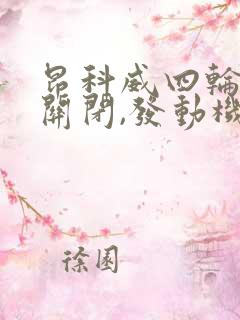 昂科威四輪
關閉,發動機
徐園